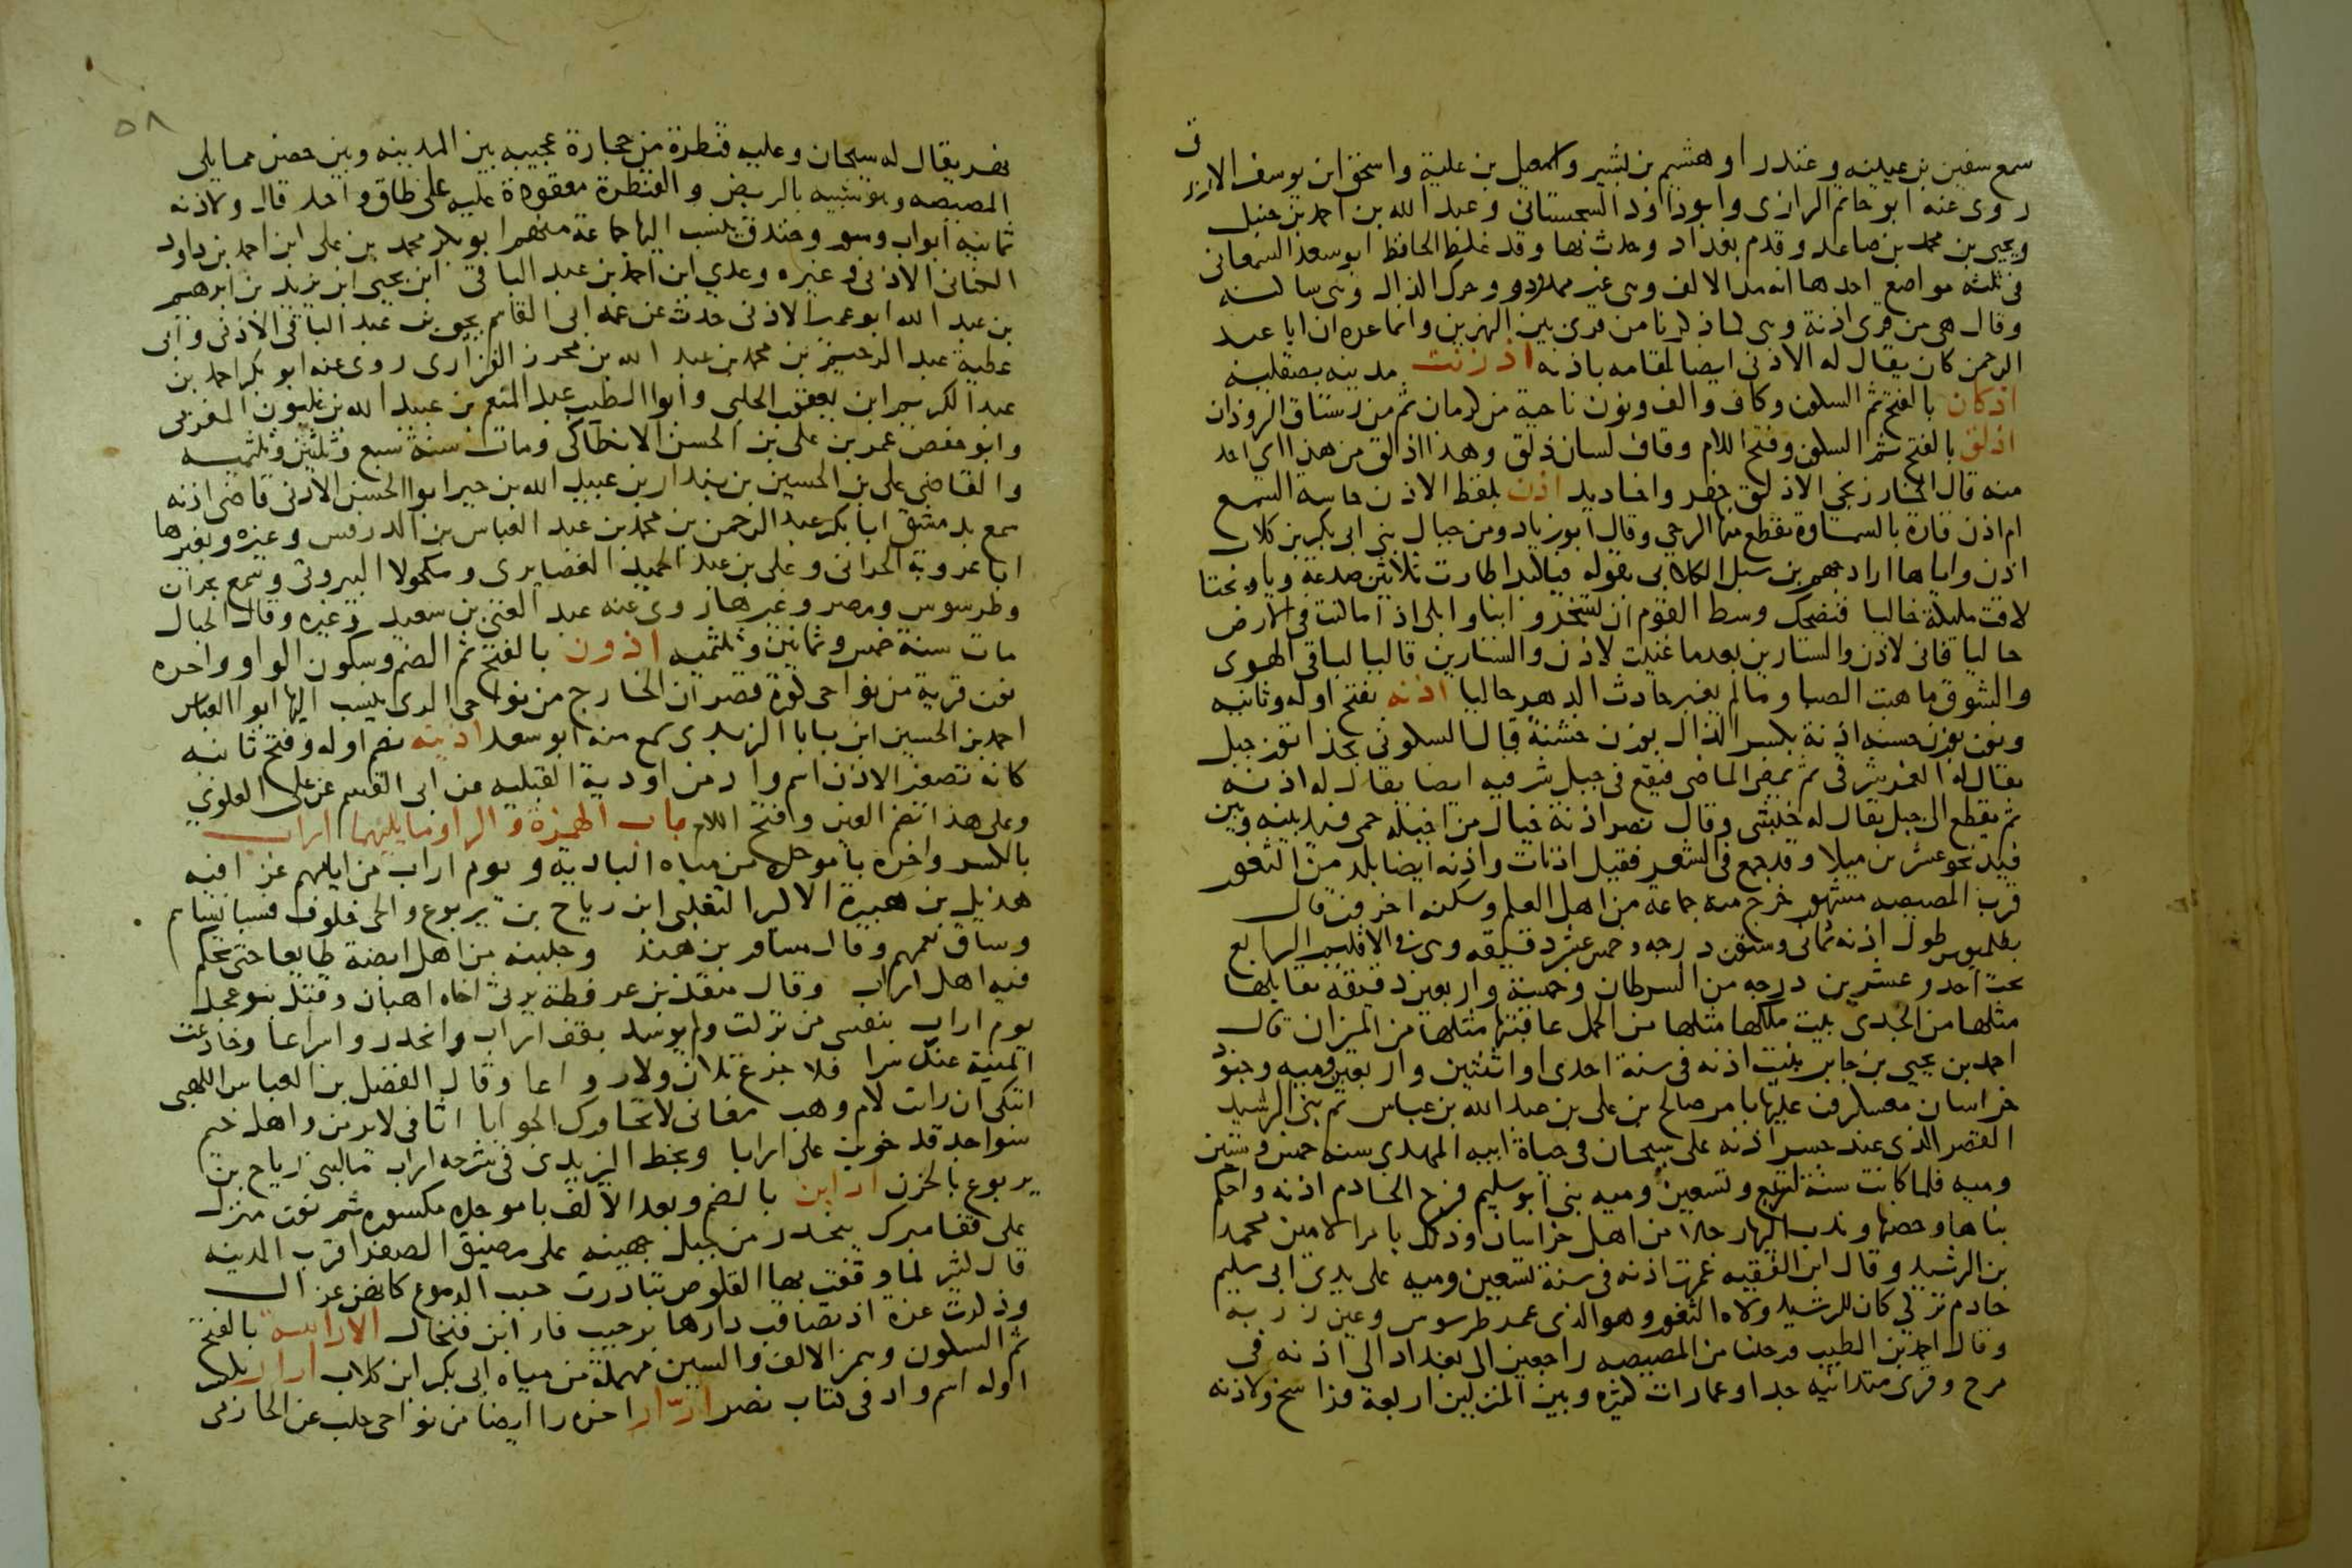 سمع سفين بن عيينه وعندرا وهشيم بن بشير واسمعيل بن علية واسحق ابن يوسف الازرق
روى عنه ابو حاتم الرازى وابو داود السجستانى وعبد الله بن احمد بن حنبل
ويحيى بن محمد بن صاعد وقدم بغداد وحدث بها وقد غلط الحافظ ابو سعد السمعانى
فى ثلثه مواضع احدها انه مد الالف وهى غير ممدودو وحرك الذال وهى ساكنه
وقال هى من قرى اذنة وهى كما ذكرنا من قرى بين النهرين وانما غره ان ابا عبد
الرحمن كان يقال له الاذنى ايضا لمقامه باذنه اذرنت مدينه بصقلية
اذكان بالفتح ثم السكون وكاف والف ونون ناحية من كرمان ثم من رستاق الروذان
اذلق بالفتح ثم السكون وفتح اللام وقاف لسان ذلق وهذا اذلق من هذا اى احد
منه قال الخارزنجى الاذلق حفر واخاديد اذن بلفظ الاذن حاسة السمع
ام اذن قارة بالسماوة تقطع منها الرحى وقال ابو زياد ومن جبال بنى ابى بكر بن كلاب
اذن واياها اراد جهم بن سبل الكلابى بقوله فيا كبدا طارت ثلاثين صدعة ويا ويحتا
لاقت مليكة خاليا فتضحك وسط القوم ان يسخروا بنا وابكى اذا ما كنت فى الارض
خاليا فانى لاذن والستارين بعدما غنيت لاذن والستارين قاليا لباقى الهوى
والشوق ما هبت الصبا وما لم يغير حادث الدهر حاليا اذنه بفتح اوله وثانيه
ونون بوزن حسنه اذنة بكسر الذال بوزن خشنة قال السكونى بحذا توز جبل
يقال له الغمر شرقى ثم يمضى الماضى فيقع فى جبل شرقيه ايضا يقال له اذنه
ثم يقطع الى جبل يقال له حبشى وقال نصر اذنة خيال من اخيلة حمى فيد بينه وبين
فيد نحو عشرين ميلا وقد جمع فى الشعر فقيل اذنات واذنه ايضا بلد من الثغور
قرب المصيصه مشهور خرج منه جماعة من اهل العلم وسكنه اخرون قال
بطلميوس طول اذنه ثمانى وستون درجه وخمس عشر دقيقه وهى فى الاقليم الرابع
تحت احد وعشرين درجه من السرطان وخمسة واربعين دقيقه يقابلها
مثلها من الجدى بيت ملكها مثلها من الحمل عاقبتها مثلها من الميزان قال
احمد بن يحيى بن جابر بنيت اذنه فى سنة احدى او اثنتين واربعين وميه وجنود
خراسان معسكرون عليها بامر صالح بن على بن عبد الله بن عباس ثم بنى الرشيد
القصر الذى عند جسر اذنه على سيحان فى حياة ابيه المهدى سنه خمس وستين
وميه فلما كانت سنة اربع وتسعين وميه بنى ابو سليم فرج الخادم اذنه واحكم
بناها وحصنها وندب اليها رجالا من اهل خراسان وذلك بامر الامين محمد
بن الرشيد وقال ابن الفقيه عمرت اذنه فى سنة تسعين وميه على يدى ابى سليم
خادم تركى كان للرشيد ولاه الثغور وهو الذى عمر طرسوس وعين زربه
وقال احمد بن الطيب رحلنا من المصيصه راجعين الى بغداد الى اذنه فى
مرج وقرى متدانيه جدا وعمارات كثيره وبين المنزلين اربعة فراسخ ولاذنه
٥٨
نهر يقال له سيحان وعليه قنطرة من حجارة عجيبه بين المدينه وبين حصن مما يلى
المصيصه وهو شبيه بالربض والقنطرة معقودة عليه على طاق واحد قال ولاذنه
ثمانيه ابواب وسور وخندق ينسب اليها جماعة منهم ابو بكر محمد بن على ابن احمد بن داود
الكتانى الاذنى وغيره وعدي ابن احمد بن عبد الباقى ابن يحيى ابن يزيد بن ابرهيم
بن عبد الله ابو عمير الاذنى حدث عن عمه ابى القاسم يحيى بن عبد الباقى الاذنى وابى
عطية عبد الرحيم بن محمد بن عبد الله بن محرز الفزارى روى عنه ابو بكر احمد بن
عبد الكريم ابن يعقوب الحلبى وابوا الطيب عبد المنعم بن عبيد الله بن غلبون المغربى
وابو حفص عمر بن على بن الحسن الانطاكى ومات سنة سبع وثلثين وثلثميه
والقاضى على بن الحسين بن بندار بن عبيد الله بن خير ابوا الحسن الاذنى قاضى اذنه
سمع بدمشق ابا بكر عبد الرحمن بن محمد بن عبد العباس بن الدرفس وغيره وبغيرها
ابا عروبة الحرانى وعلى بن عبد الحميد الغضايرى ومكحولا البيروتى وسمع بحران
وطرسوس ومصر وغيرها روى عنه عبد الغنى بن سعيد وغيره وقال الحبال
مات سنة خمس وثمانين وثلثميه اذون بالفتح ثم الضم وسكون الواو واخره
نون قرية من نواحى كورة قصران الخارج من نواحى الرى ينسب اليها ابوا العباس
احمد بن الحسين ابن بابا الزيدى سمع منه ابو سعد اذينه بضم اوله وفتح ثانيه
كانه تصغير الاذن اسم واد من اودية القبليه عن ابى القسم عن على العلوى
وعلى هذا بضم العين وافتح اللام باب الهمزة والراء وما يليهما اراب
بالكسر واخره با موحدة من مياه الباديه ويوم اراب من ايامهم غزا فيه
هذيل بن هبيرة الاكبر التغلبى ابن رياح بن يربوع والحى خلوف فسبا نساءهم
وساق نعمهم وقال مساور بن هند وجلبته من اهل ابضة طايعا حتى تحكم
فيه اهل اراب وقال منقذ بن عرفطة يرثى اخاه اهبان وقتله بنو عجل
يوم اراب بنفسى من تركت ولم يوسد بقف اراب وانحدروا سراعا وخادعت
المنية عنك سرا فلا جزع تلان ولا رواعا وقال الفضل بن العباس اللهبى
اتبكى ان رات لام وهب مغانى لا تحاورك الجوابا اثافى لا يرمن واهل خيم
سواجد قد خوين على ارابا وبخط اليزيدى فى شرحه اراب ما لبنى رياح بن
يربوع بالحزن ارابن بالضم وبعد الالف با موحده مكسوره ثم نون منزل
على قفا مبرك ينحدر من جبل جهينه على مضيق الصفرا قرب المدينه
قال كثير لما وقفت بها القلوص تبادرت حبب الدموع كانهن عزالى
وذكرت عزة اذ تصاقب دارها برحيب فارابن فنخال الارابسة بالفتح
ثم السكون وهمز الالف والسين مهملة من مياه ابى بكر ابن كلاب ارار بكسر
اوله اسم واد فى كتاب نصر ارّار اخره را ايضا من نواحى حلب عن الحازمى